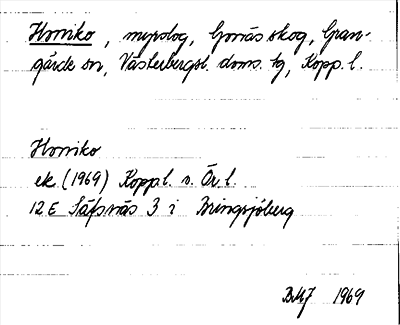 Horriko, myrslog, Gonäs skog, Gran-
gärde sn, Västerbergsl. doms. tg, Kopp. l.
Horriko
ek (1969) Koppl. v. Ör. l.
12 E Säfsnäs 3 i Bringsjöberg
1969